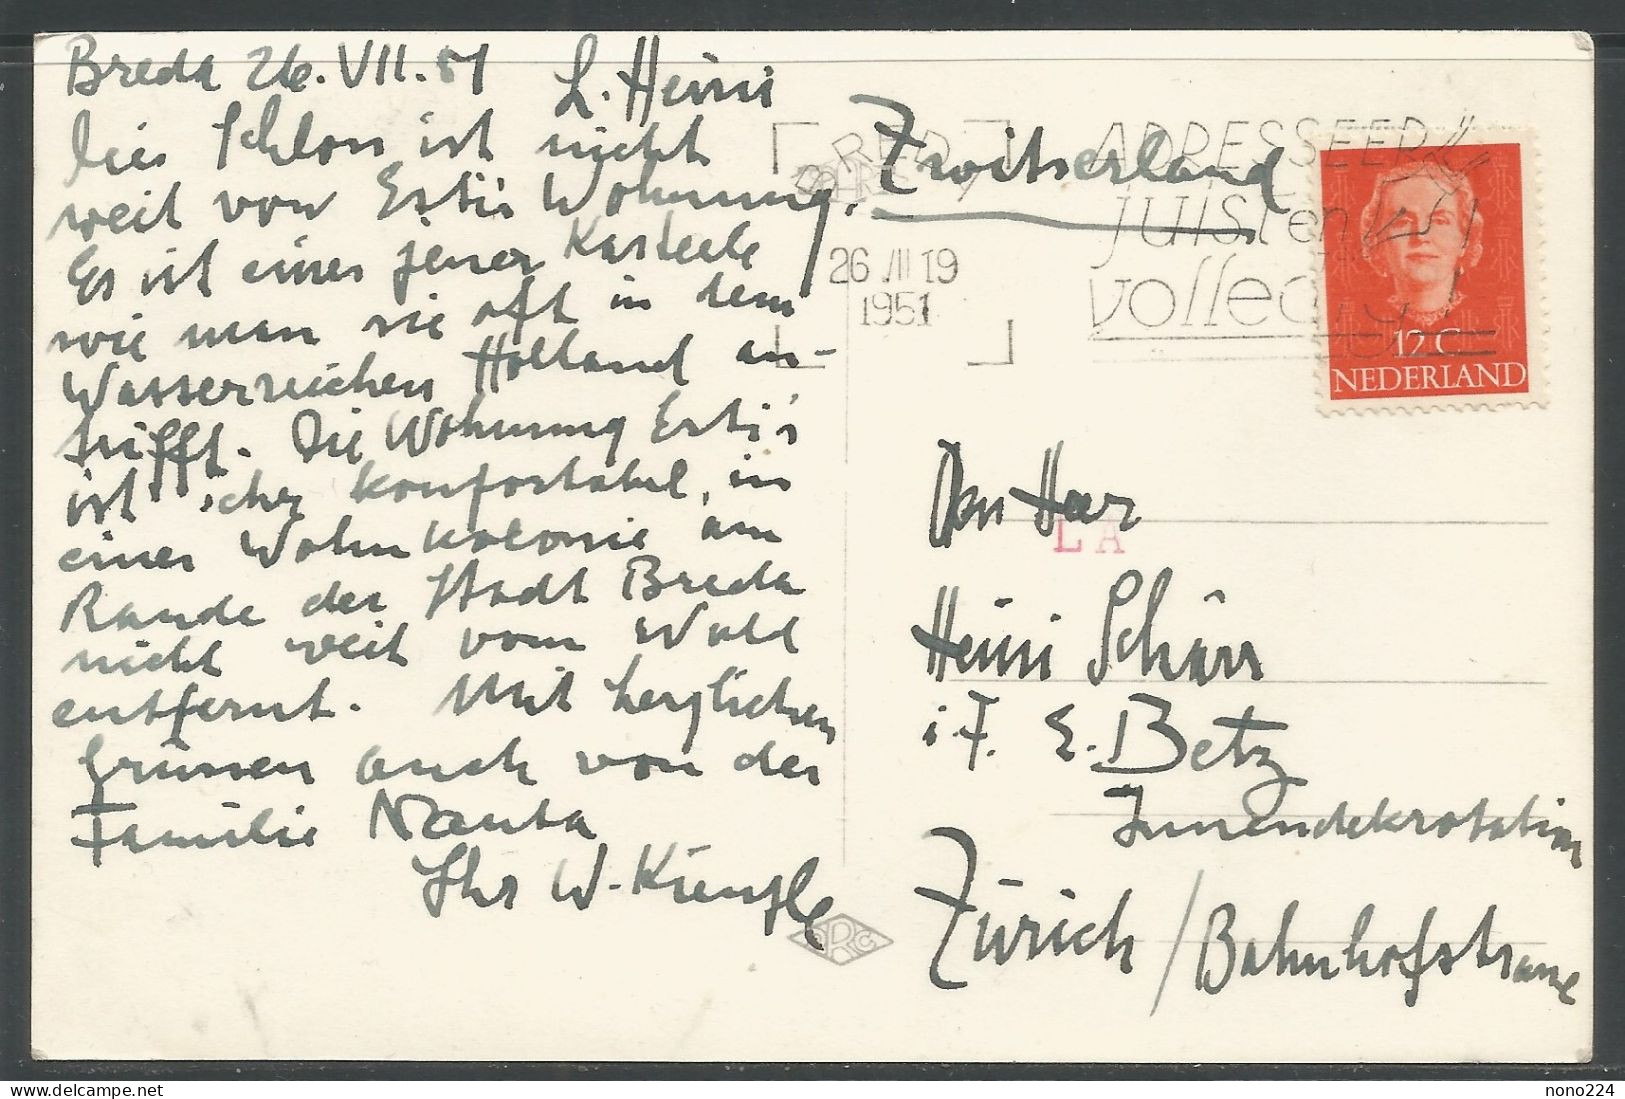 Breda 26. VII. 51 L. Heini
Dies Schloss ist nicht
weit von Esti's Wohnung.
Es ist eines jener Kasteele
wie man sie oft in dem
Wasserreichen Holland an-
trifft. Die Wohnung Esti's
ist sehr konfortabel, in
einer Wohnkolonie am
Rande der Stadt Breda
nicht weit vom Wald
entfernt. Mit herzlichen
Grüssen auch von der
Familie Nauta
Ihr W. Kienzle
Zwitserland
BREDA
26 VII 19
1951
ADRESSEER
JUIST en
volledig!
12 C
NEDERLAND
Den Heer
LA
Heini Schürr
i. F. E. Betz
Innendekoration
Zürich / Bahnhofstrasse
RC
nono224